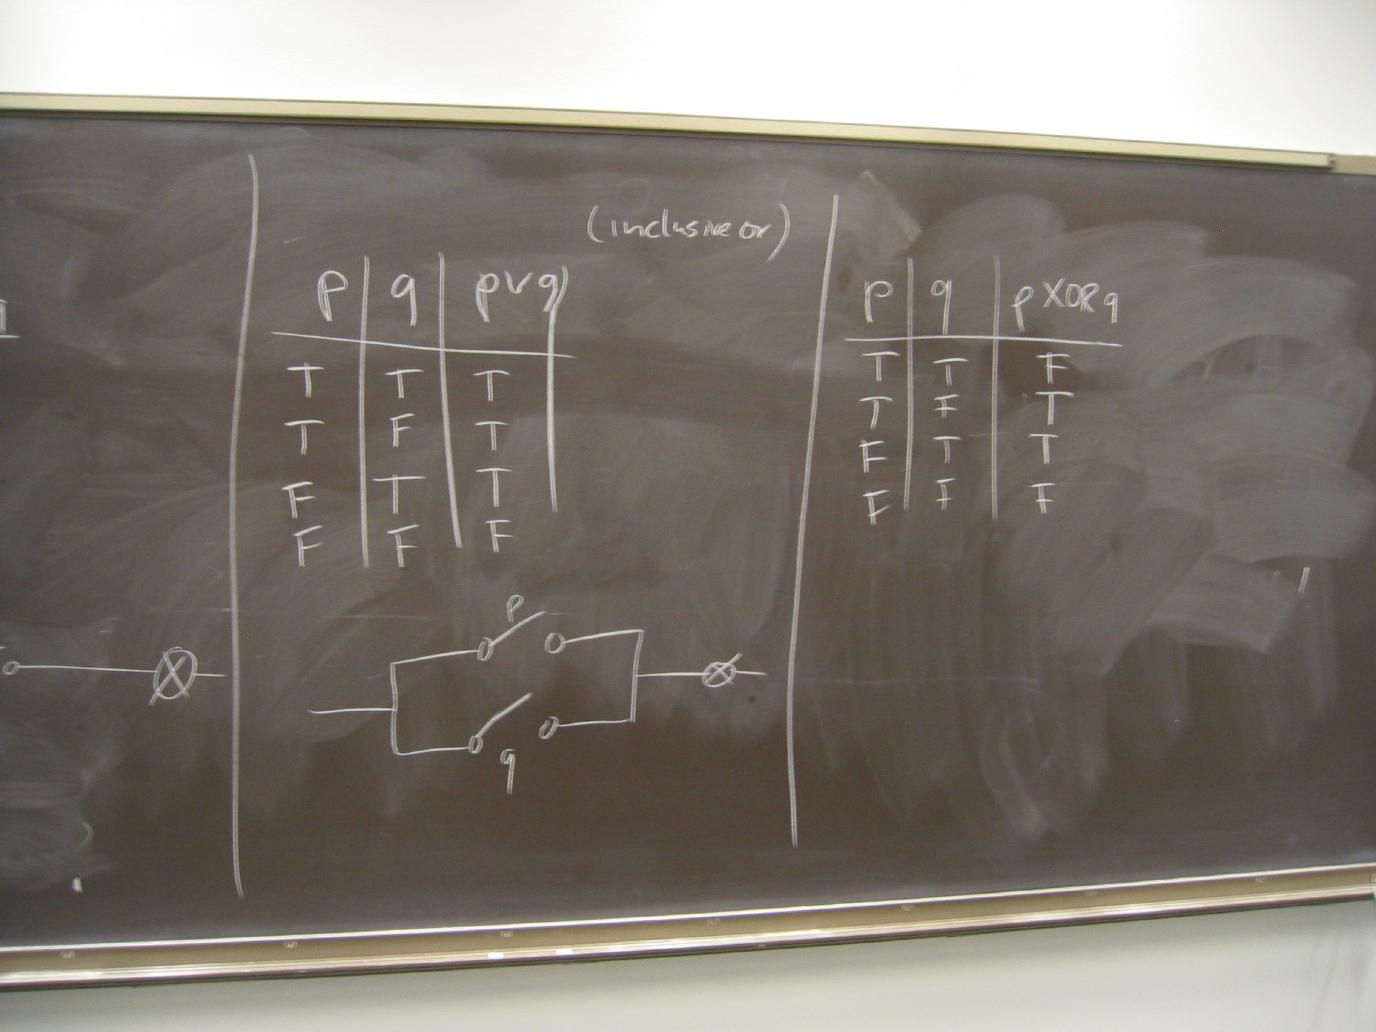 (inclusive or)
p q p∨q
T T T
T F T
F T T
F F F
p
q
p q p XOR q
T T F
T F T
F T T
F F F